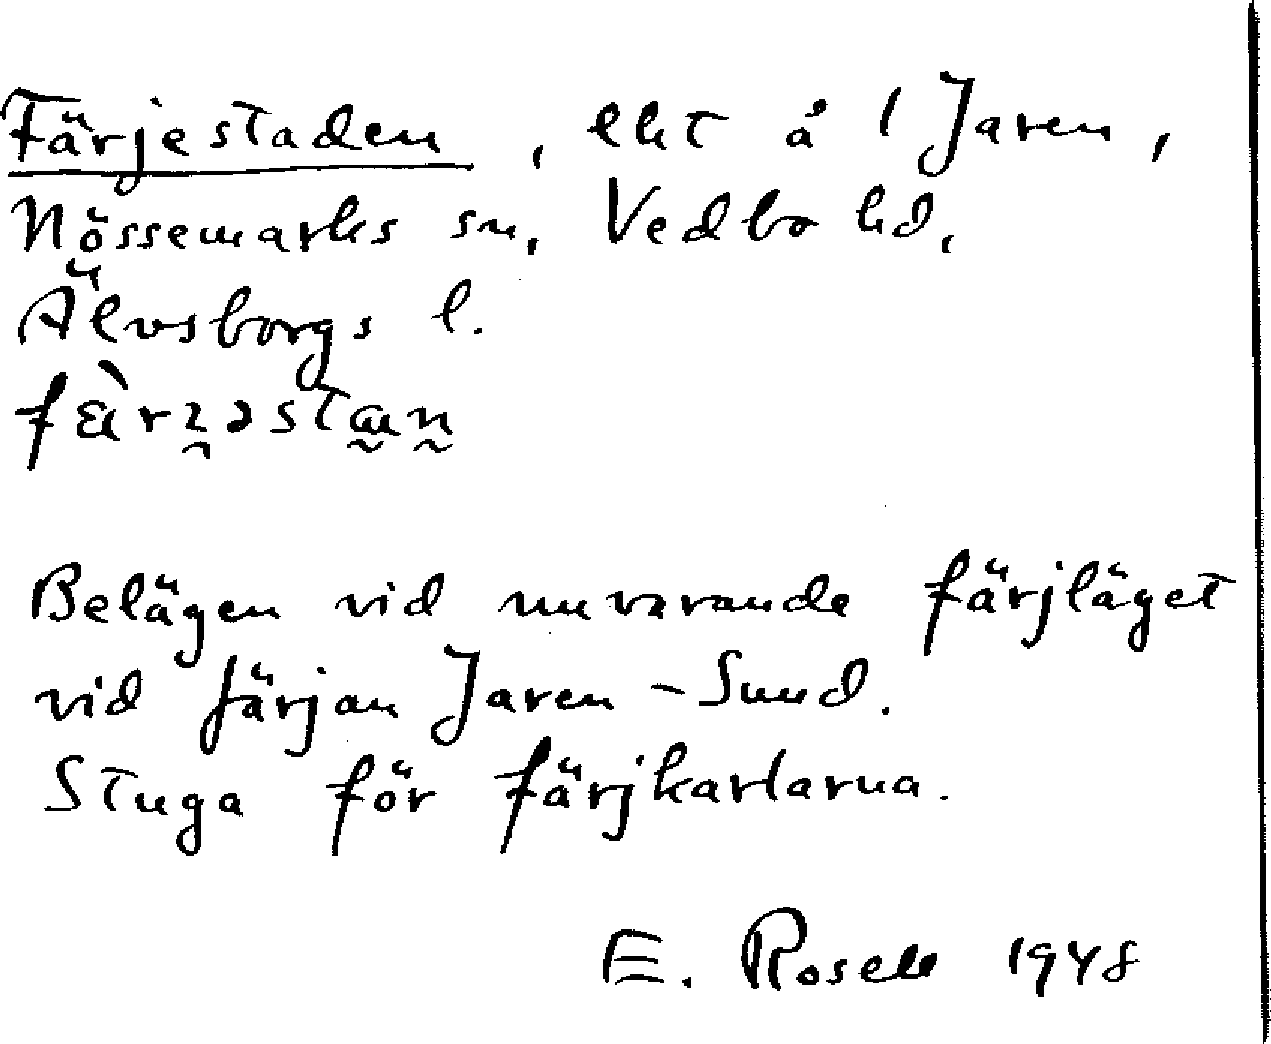 Färjestaden, lht å 1 Jaren,
Nössemarks sn, Vedbo hd,
Älvsborgs l.
Belägen vid nuvarande färjläget
vid färjan Jaren - Sund.
Stuga för färjkarlarna.
E. Rosell 1948